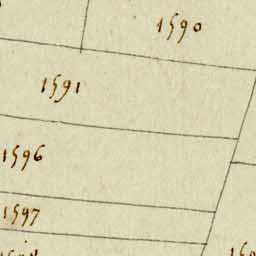 1590
1591
1596
1597